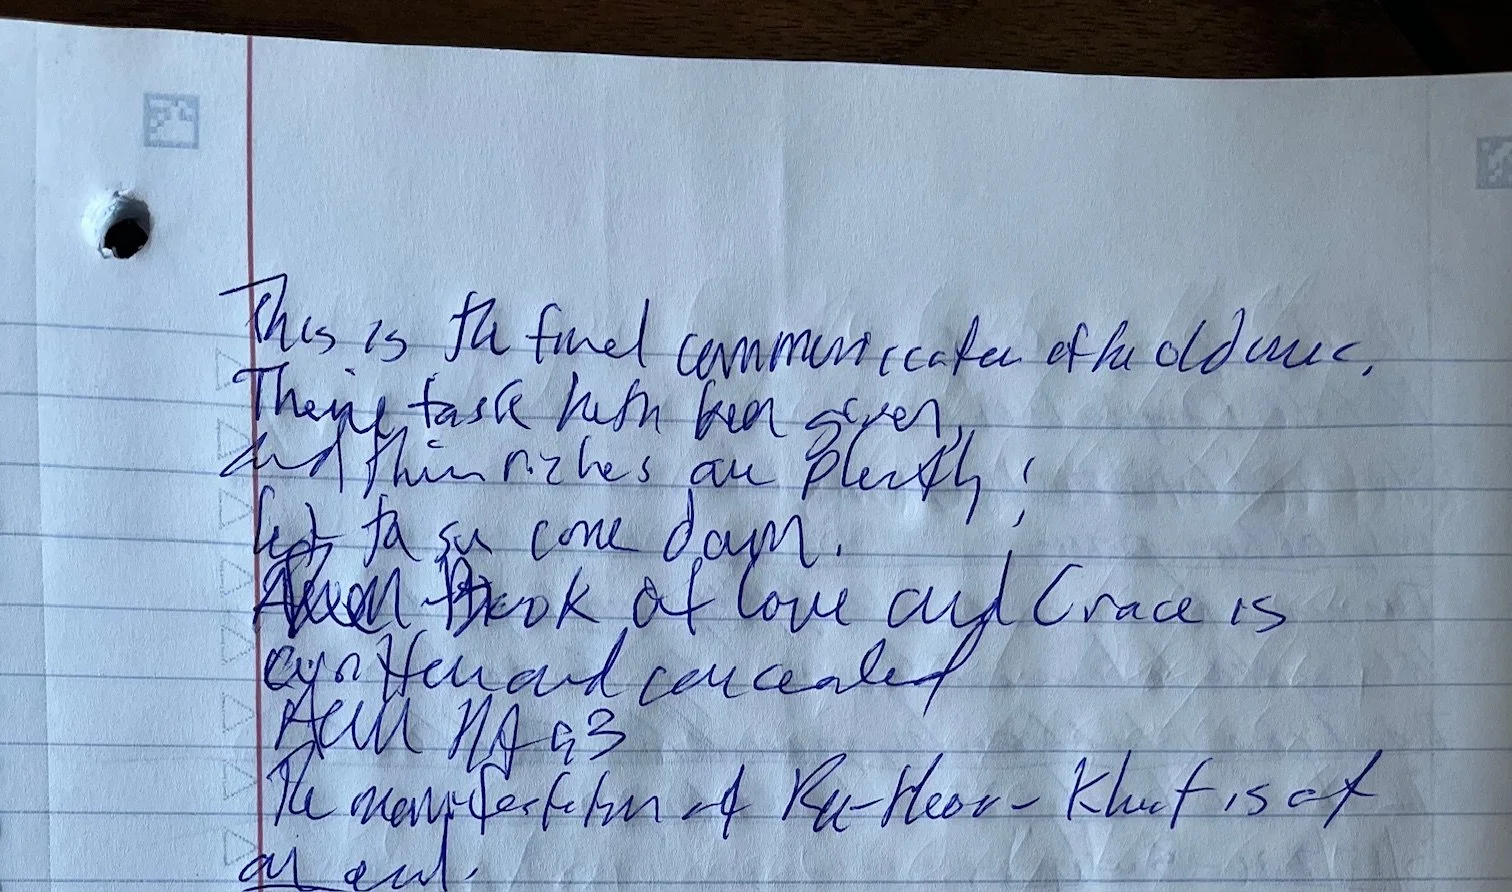 This is the final communication of the old one.
Thine task hath been given,
and thin riches are plenty;
let
Book of Love and Grace is
written and concealed
The manifestation of Ra-Hoor-Khuit is at
an end.